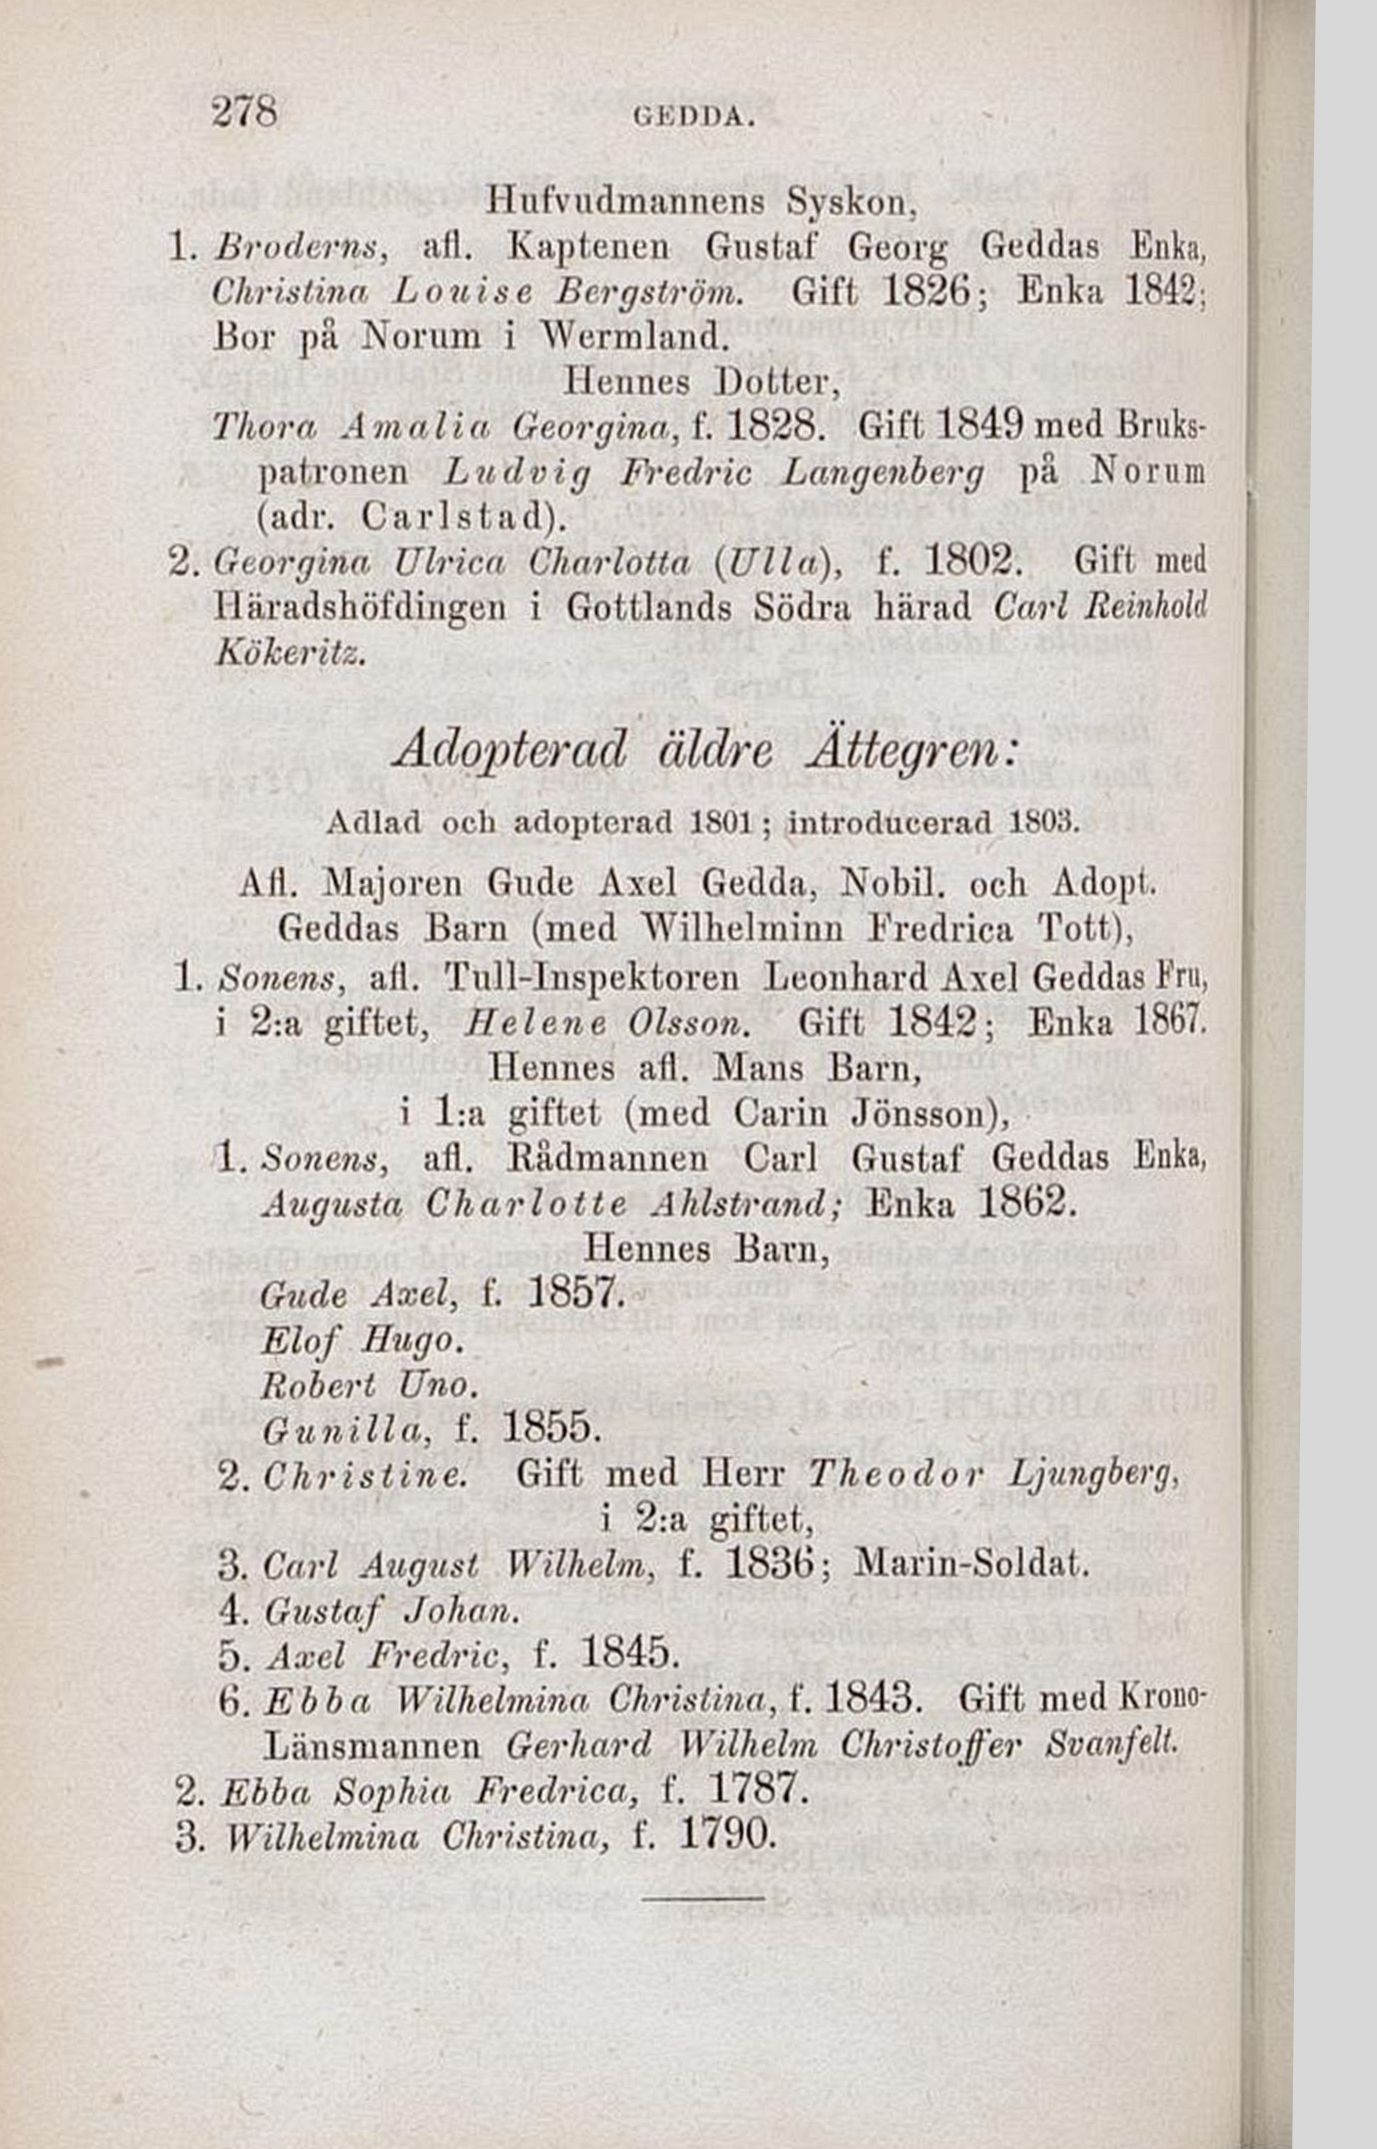 278
GEDDA.
Hufvudmannens Syskon,
1. Broderns, afl. Kaptenen Gustaf Georg Geddas Enka,
Christina Louise Bergström. Gift 1826; Enka 1842;
Bor på Norum i Wermland.
Hennes Dotter,
Thora Amalia Georgina, f. 1828. Gift 1849 med Bruks-
patronen Ludvig Fredric Langenberg på Norum
(adr. Carlstad).
2. Georgina Ulrica Charlotta (Ulla), f. 1802. Gift med
Häradshöfdingen i Gottlands Södra härad Carl Reinhold
Kökeritz.
Adopterad äldre Ättegren:
Adlad och adopterad 1801; introducerad 1803.
Afl. Majoren Gude Axel Gedda, Nobil. och Adopt.
Geddas Barn (med Wilhelminn Fredrica Tott),
1. Sonens, afl. Tull-Inspektoren Leonhard Axel Geddas Fru,
i 2:a giftet, Helene Olsson. Gift 1842; Enka 1867.
Hennes afl. Mans Barn,
i 1:a giftet (med Carin Jönsson),
1. Sonens, afl. Rådmannen Carl Gustaf Geddas Enka,
Augusta Charlotte Ahlstrand; Enka 1862.
Hennes Barn,
Gude Axel, f. 1857.
Elof Hugo.
Robert Uno.
Gunilla, f. 1855.
2. Christine. Gift med Herr Theodor Ljungberg,
i 2:a giftet,
3. Carl August Wilhelm, f. 1836; Marin-Soldat.
4. Gustaf Johan.
5. Axel Fredric, f. 1845.
6. Ebba Wilhelmina Christina, f. 1843. Gift med Krono-
Länsmannen Gerhard Wilhelm Christoffer Svanfelt.
2. Ebba Sophia Fredrica, f. 1787.
3. Wilhelmina Christina, f. 1790.